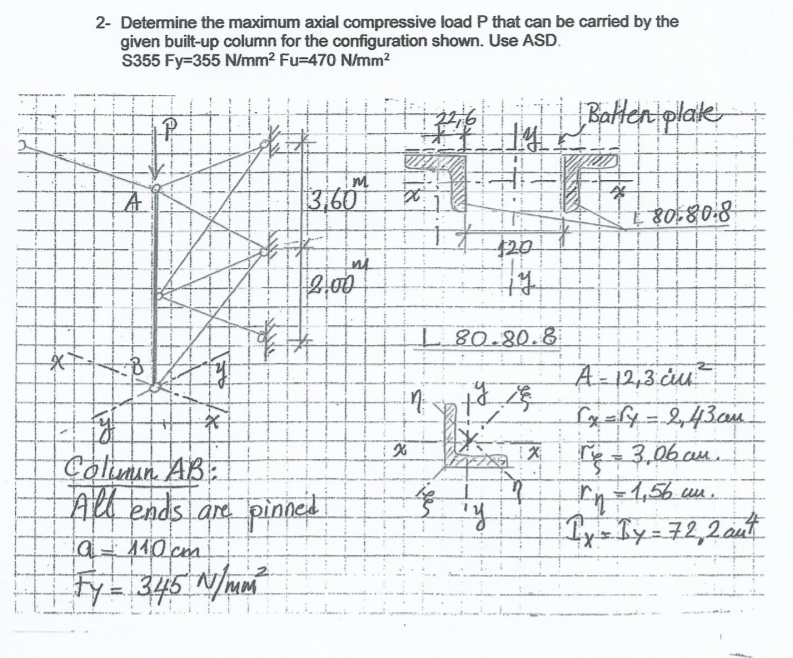 2- Determine the maximum axial compressive load P that can be carried by the
given built-up column for the configuration shown. Use ASD.
S355 Fy=355 N/mm² Fu=470 N/mm²
P
A
3,60 m
2.00 m
x
B
y
y
x
22,6
y
Batten plate
x
x
L 80.80.8
120
y
L 80.80.8
η
y
ξ
x
x
ξ
y
η
A = 12,3 cm²
rx = ry = 2,43 cm
rξ = 3,06 cm.
rη = 1,56 cm.
Ix = Iy = 72,2 cm⁴
Column AB:
All ends are pinned
a = 110 cm
Fy = 345 N/mm²